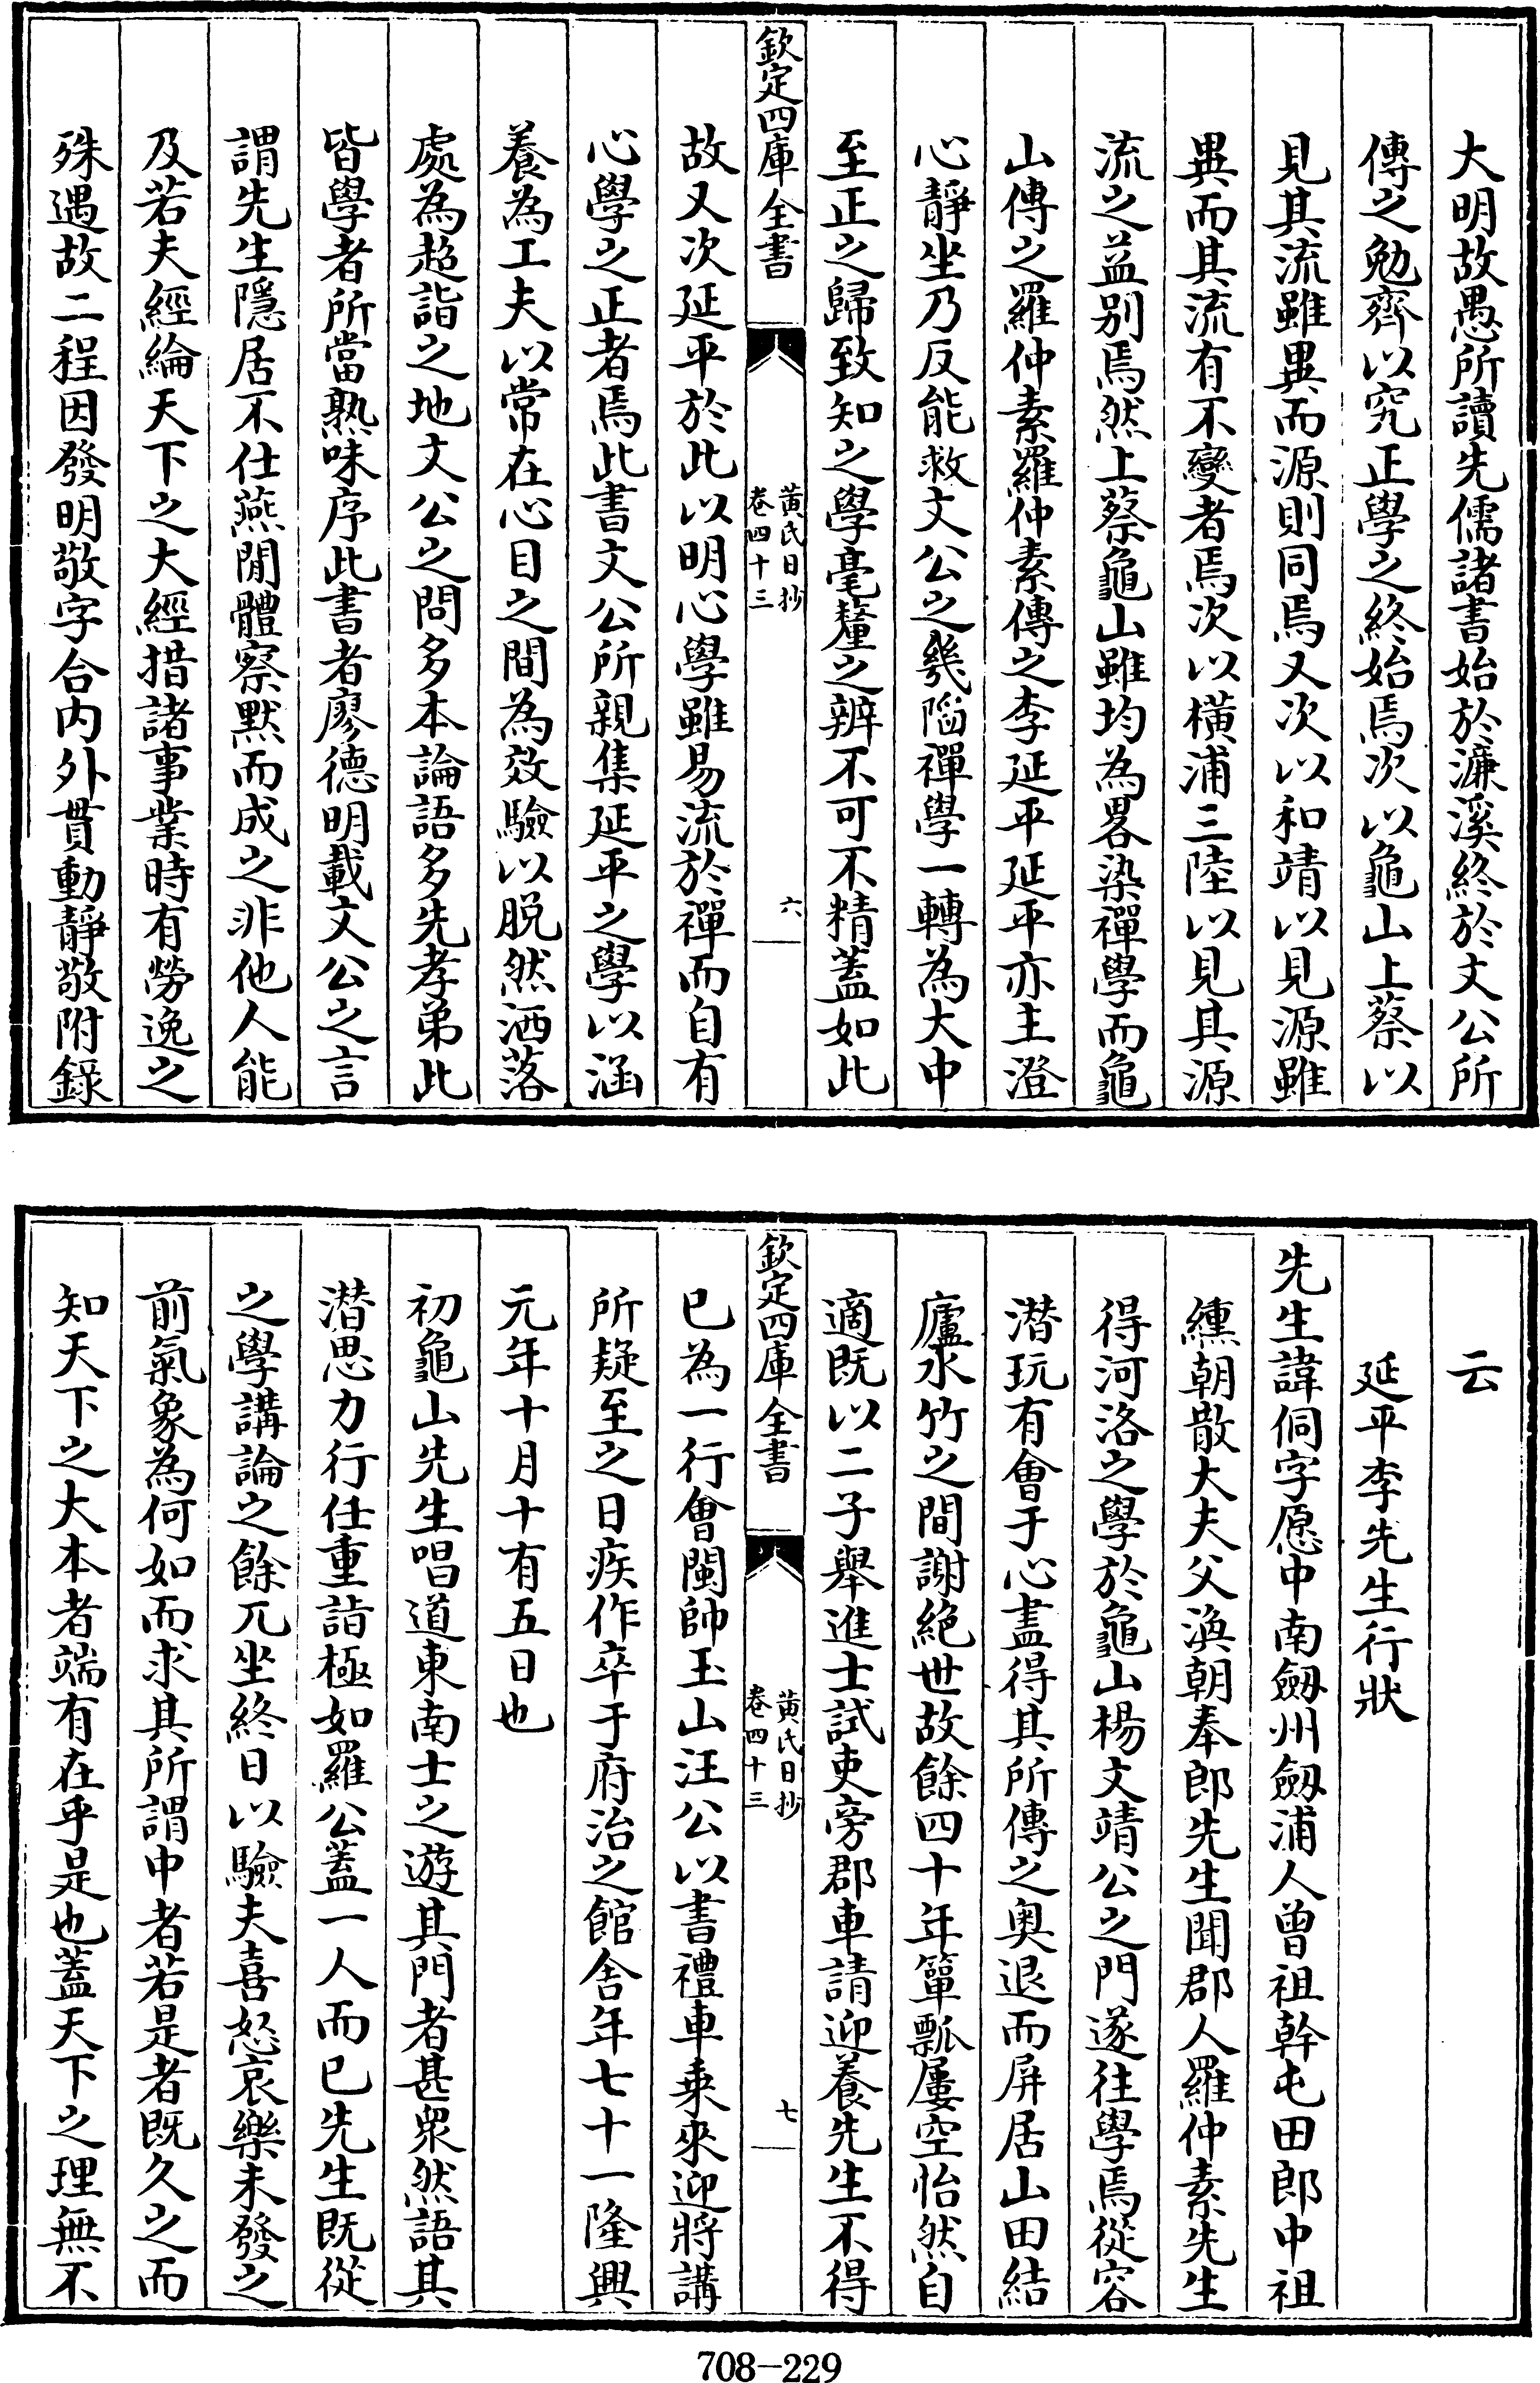 大明故愚所讀先儒諸書始於濂溪終於文公所
傳之勉齊以究正學之終始焉次以龜山上蔡以
見其流雖異而源則同焉又次以和靖以見源雖
異而其流有不變者焉次以橫浦三陸以見其源
流之益别焉然上蔡龜山雖均為畧染禪學而龜
山傳之羅仲素羅仲素傳之李延平延平亦主澄
心靜坐乃反能救文公之幾陷禪學一轉為大中
至正之歸致知之學毫釐之辨不可不精蓋如此
欽定四庫全書
黃氏日抄
卷四十三
六
故又次延平於此以明心學雖易流於禪而自有
心學之正者焉此書文公所親集延平之學以涵
養為工夫以常在心目之間為效驗以脱然洒落
處為超詣之地文公之問多本論語多先孝弟此
皆學者所當熟味序此書者廖德明載文公之言
謂先生隱居不仕燕閒體察默而成之非他人能
及若夫經綸天下之大經措諸事業時有勞逸之
殊遇故二程因發明敬字合内外貫動靜敬附錄
云
延平李先生行狀
先生諱侗字愿中南劔州劔浦人曾祖幹屯田郎中祖
纁朝散大夫父渙朝奉郎先生聞郡人羅仲素先生
得河洛之學於龜山楊文靖公之門遂往學焉從容
潛玩有會于心盡得其所傳之奥退而屏居山田結
廬水竹之間謝絶世故餘四十年簞瓢屢空怡然自
適既以二子舉進士試吏旁郡車請迎養先生不得
欽定四庫全書
黃氏日抄
卷四十三
七
已為一行會閩帥玉山汪公以書禮車乗來迎將講
所疑至之日疾作卒于府治之館舍年七十一隆興
元年十月十有五日也
初龜山先生唱道東南士之遊其門者甚衆然語其
潛思力行任重詣極如羅公蓋一人而已先生既從
之學講論之餘兀坐終日以驗夫喜怒哀樂未發之
前氣象為何如而求其所謂中者若是者既久之而
知天下之大本者端有在乎是也蓋天下之理無不
708-229